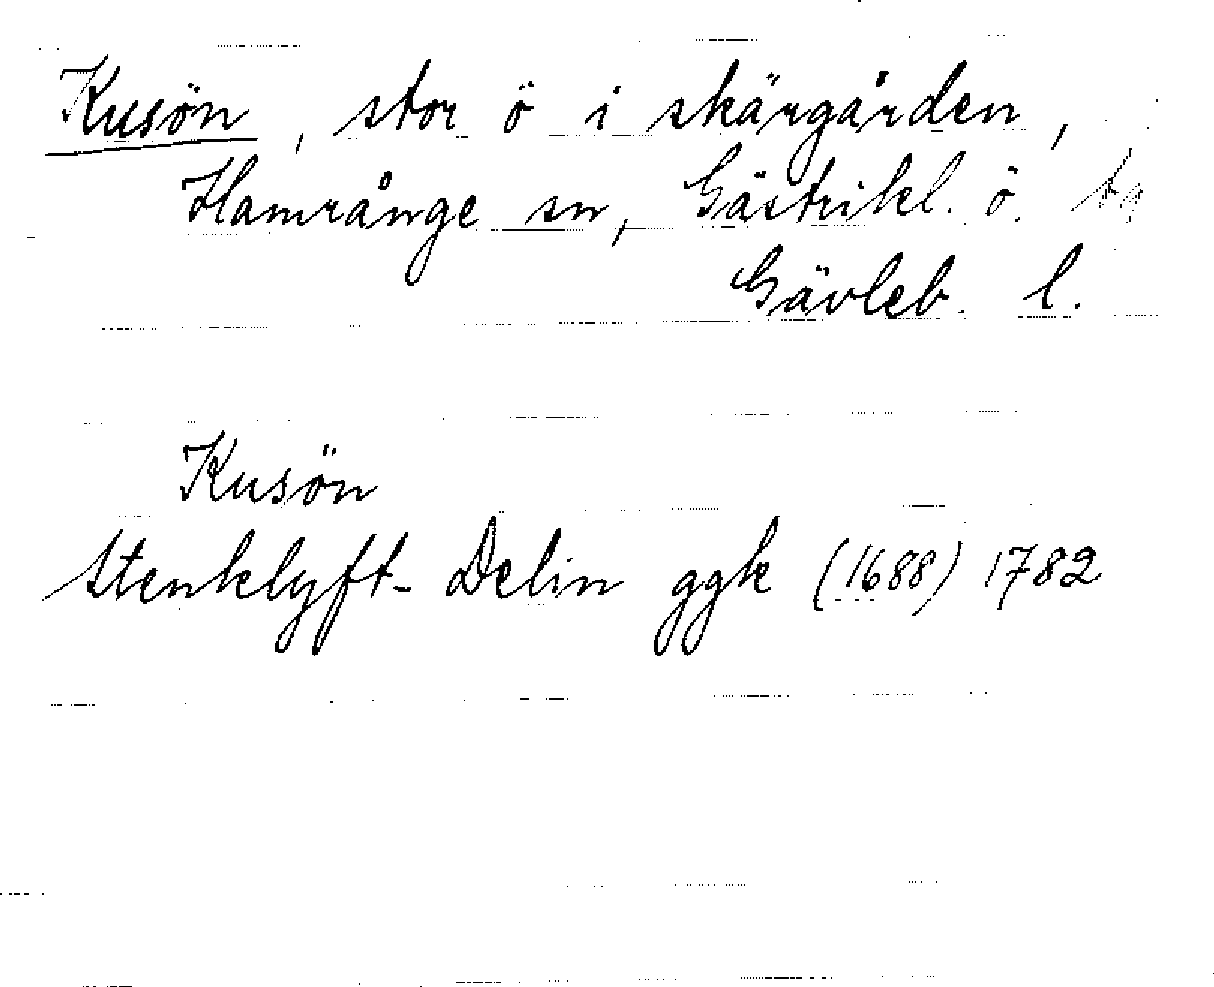 Kusön, stor ö i skärgården,
Hamrånge sn, Gästrikl. ö. tg
Gävleb. l.
Kusön
Stenklyft-Delin ggk (1688) 1782